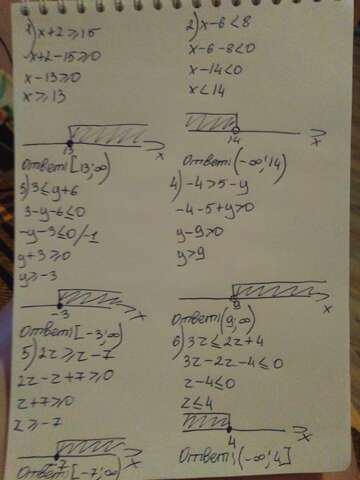 1) x+2≥15
-x+2-15≥0
x-13≥0
x≥13
13
x
Ответ: [13;∞)
2) x-6<8
x-6-8<0
x-14<0
x<14
14
x
Ответ: (-∞;14)
3) 3≤y+6
3-y-6≤0
-y-3≤0/-1
y+3≥0
y≥-3
-3
x
Ответ: [-3;∞)
4) -4>5-y
-4-5+y>0
y-9>0
y>9
9
x
Ответ: (9;∞)
5) 2z≥z-7
2z-z+7≥0
z+7≥0
z≥-7
-7
x
Ответ: [-7;∞)
6) 3z≤2z+4
3z-2z-4≤0
z-4≤0
z≤4
4
x
Ответ: (-∞;4]